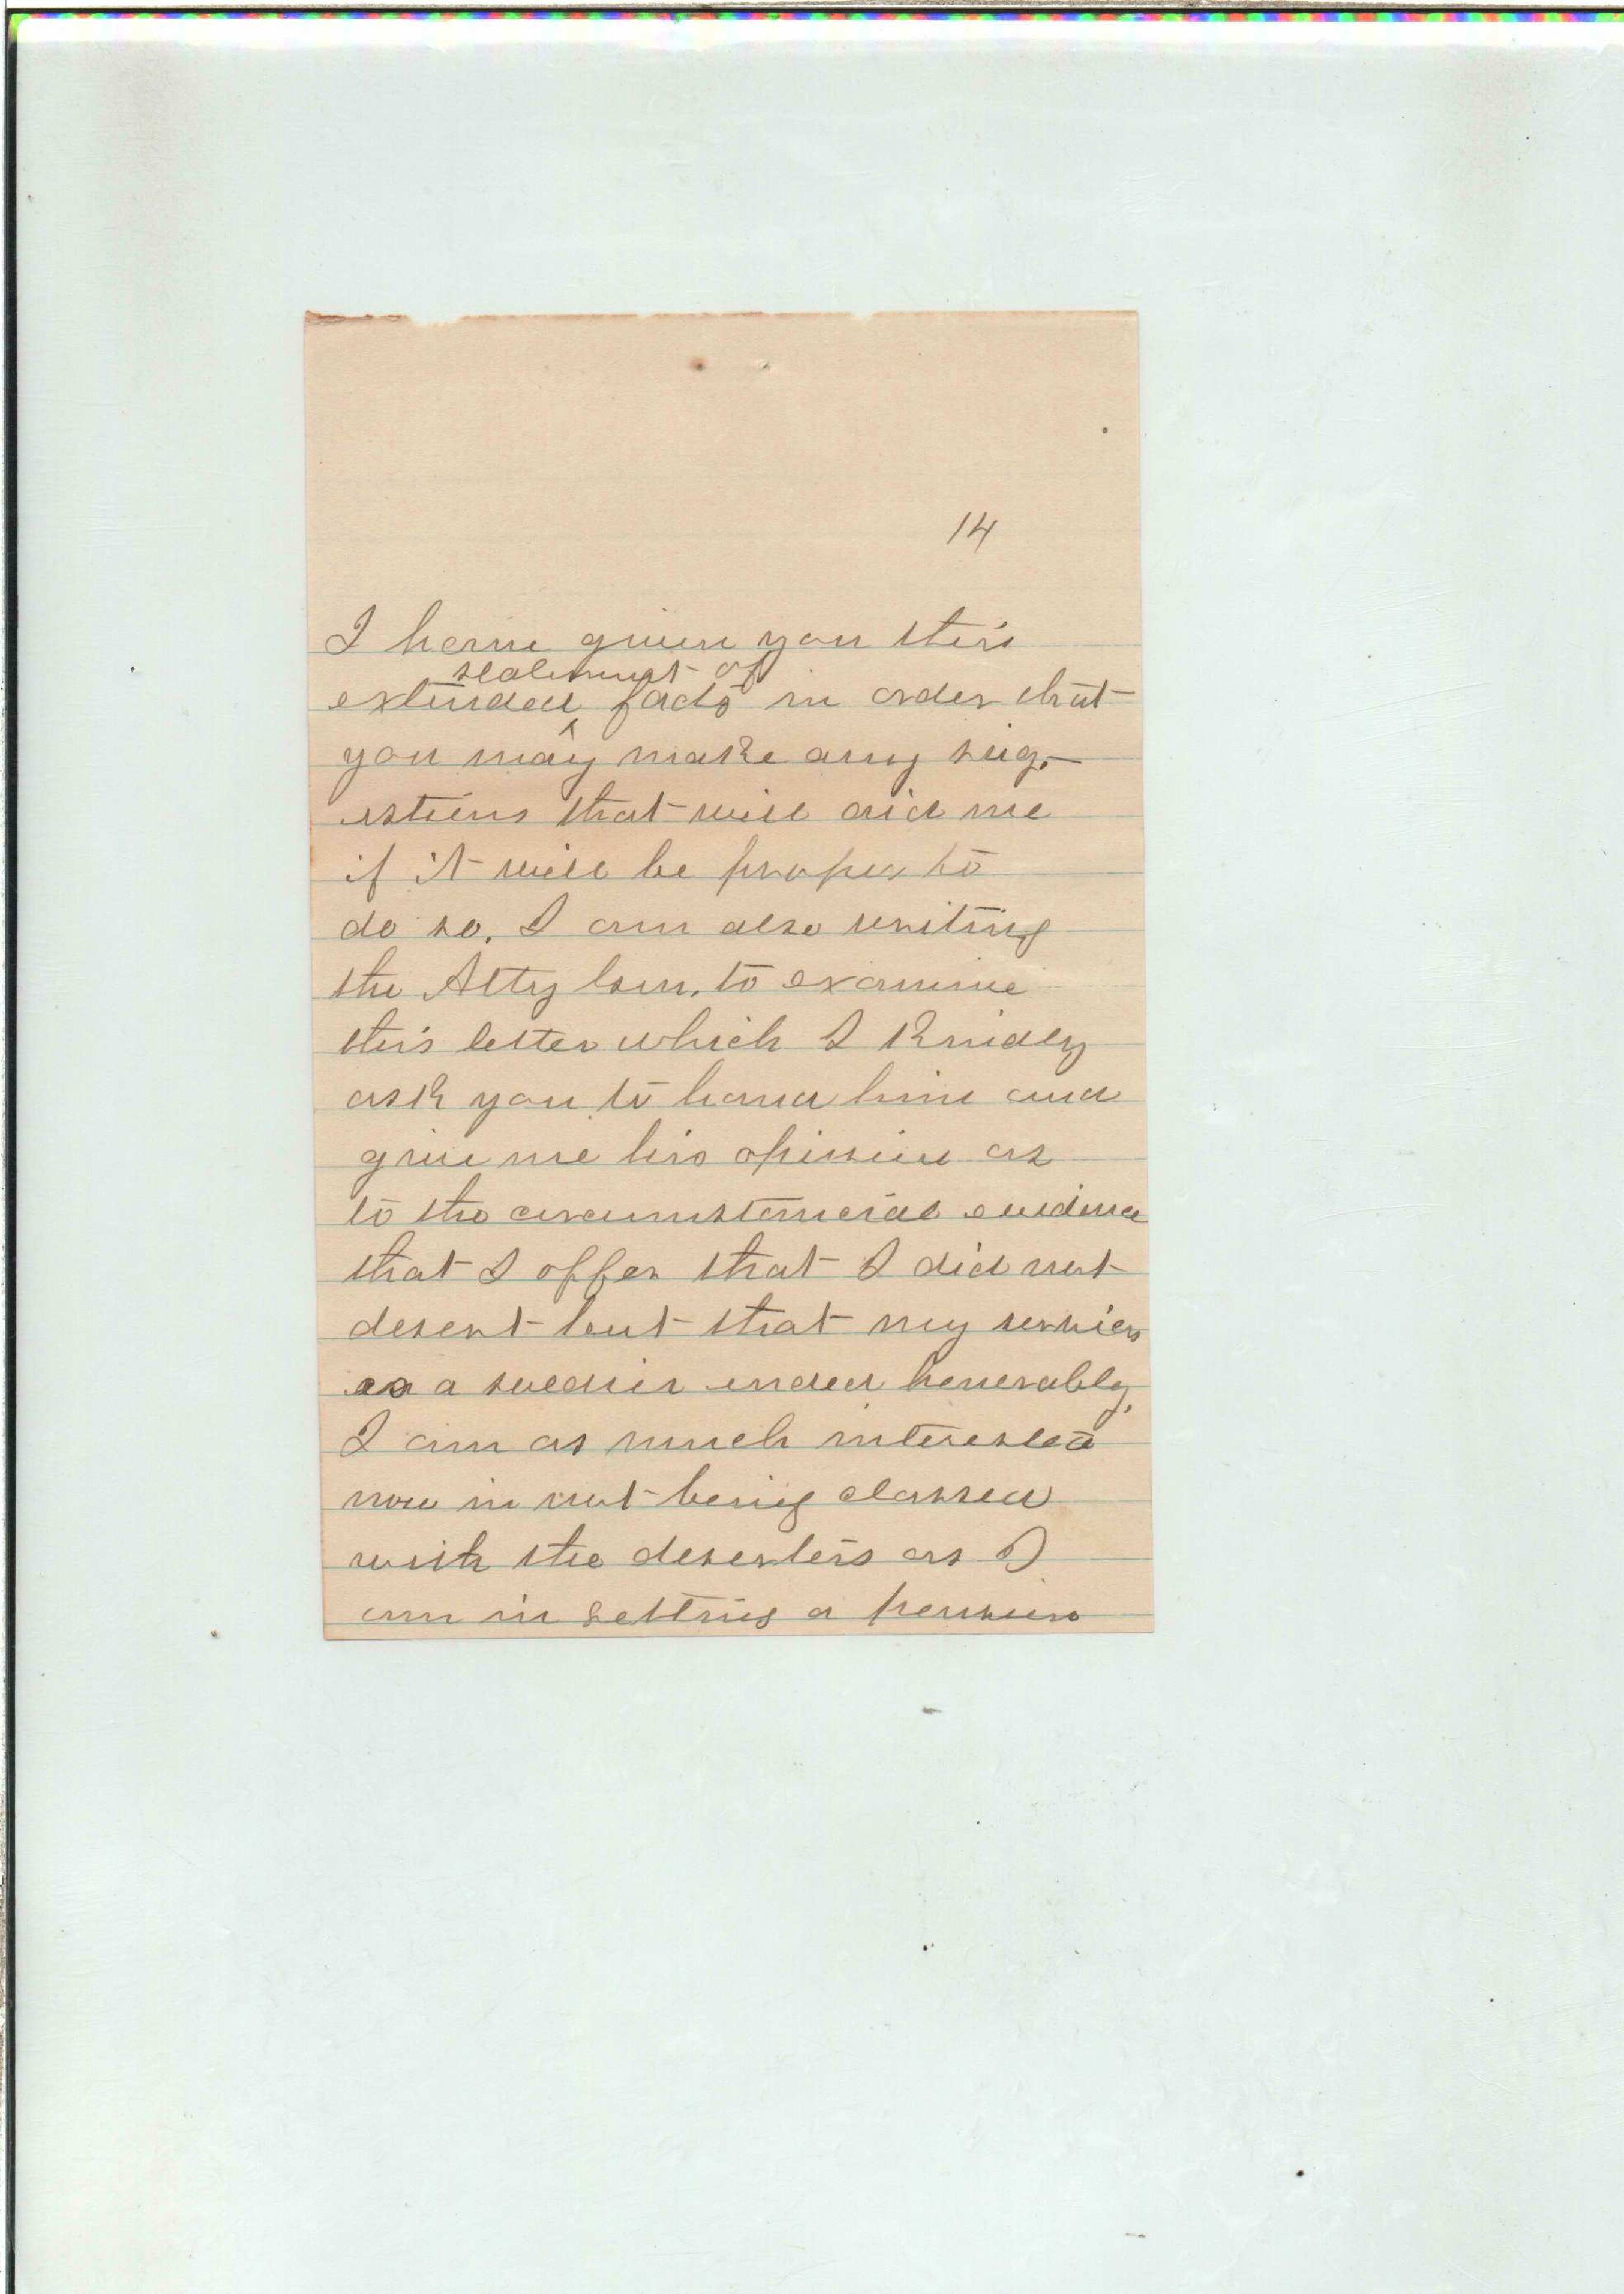 14
I have given you this
statement of
extended facts in order that
you may make any sug-
estions that will aid me
if it will be proper to
do so. I am also writing
the Atty Gen. to examine
this letter which I Kindly
ask you to hand him and
give me his opinion as
to the circumstancial evidence
that I offer that I did not
desert but that my services
as a soldier ended honorably,
I am as much interested
now in not being classed
with the deserters as I
am in getting a pension